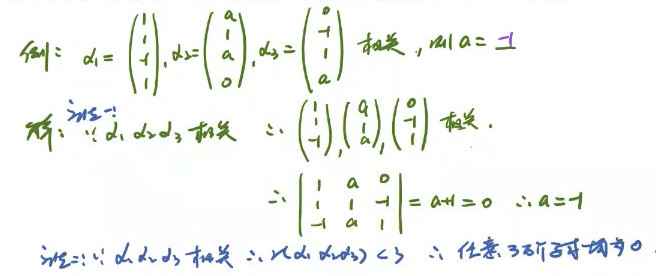 例: α₁ = (1 1 -1 1), α₂ = (a 1 a 0), α₃ = (0 -1 1 a) 相关, 则 a = -1
法一:
解: ∵ α₁ α₂ α₃ 相关 ∴ (1 1 -1), (a 1 a), (0 -1 1) 相关.
∴ | 1 a 0 ; 1 1 -1 ; -1 a 1 | = a+1 = 0 ∴ a = -1
法二: ∵ α₁ α₂ α₃ 相关 ∴ r(α₁ α₂ α₃) < 3 ∴ 任意 3 阶子式均为 0